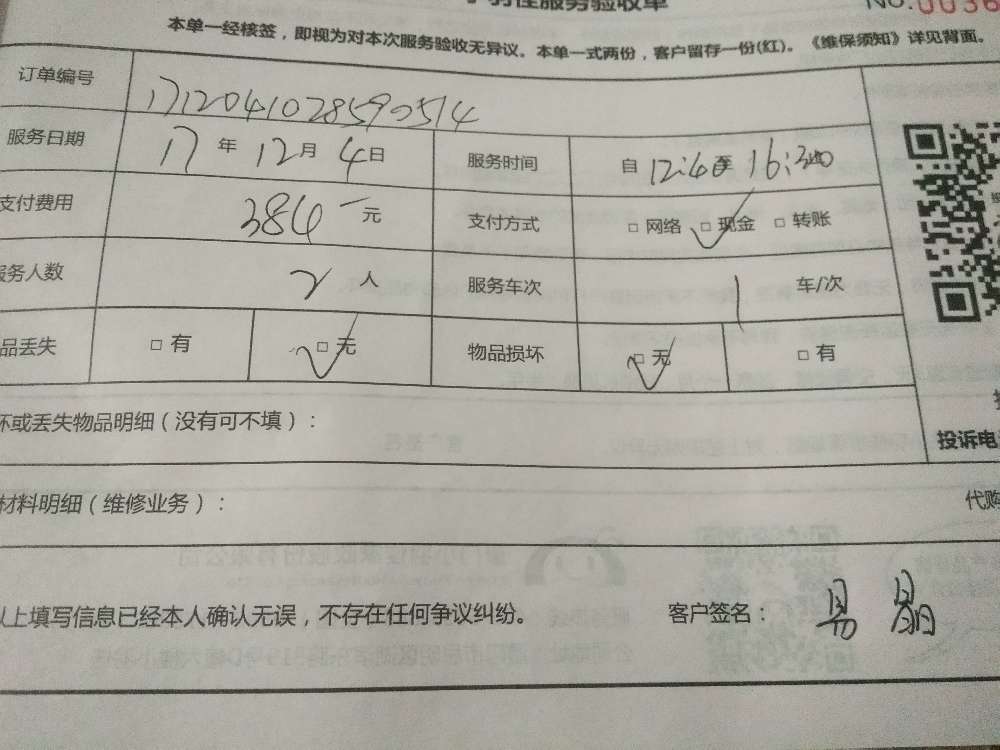 性服务验收单 NO.0036
本单一经核签，即视为对本次服务验收无异议。本单一式两份，客户留存一份(红)。《维保须知》详见背面。
订单编号 1712041028590514
服务日期 17年12月4日 服务时间 自12:40至16:30
支付费用 384元 支付方式 □网络 □现金 □转账
服务人数 2人 服务车次 1车/次
品丢失 □有 □无 物品损坏 □无 □有
坏或丢失物品明细（没有可不填）：
投诉电
材料明细（维修业务）： 代购
以上填写信息已经本人确认无误，不存在任何争议纠纷。 客户签名：易晶